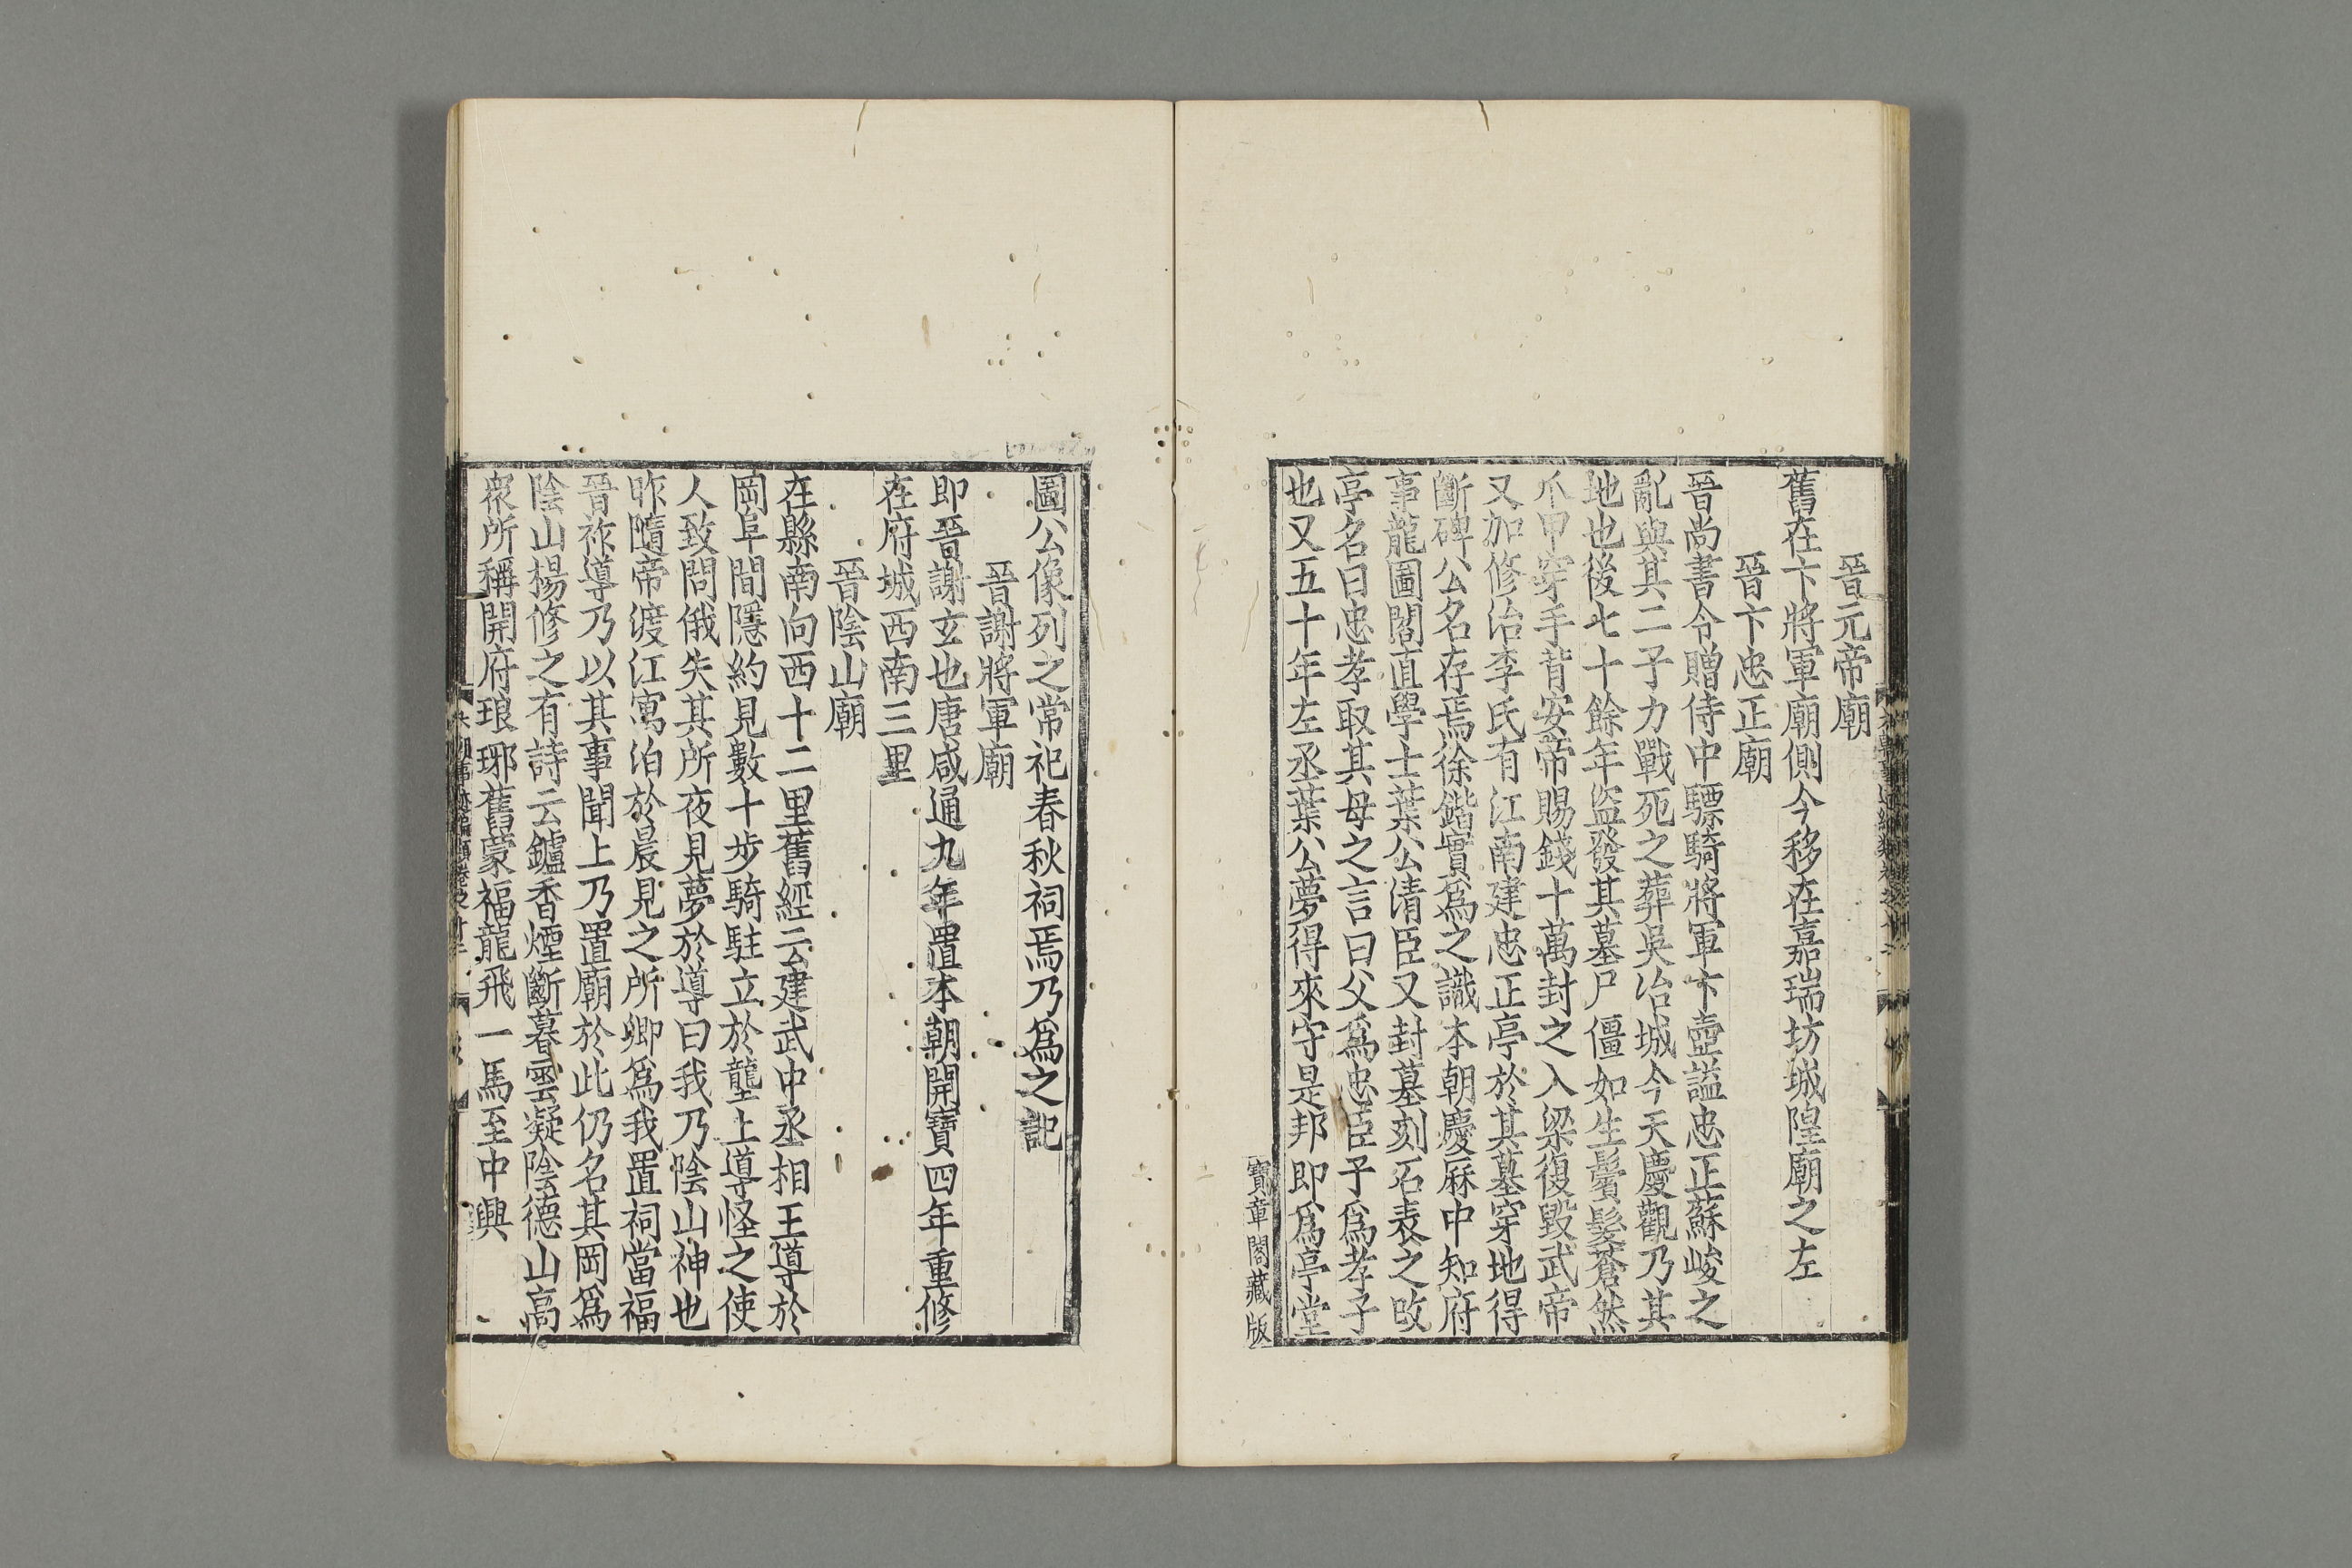 晉元帝廟
舊在卞將軍廟側今移在嘉瑞坊城隍廟之左
晉卞忠正廟
晉尚書令贈侍中驃騎將軍卞壼謚忠正蘇峻之
亂與其二子力戰死之葬吳冶城今天慶觀乃其
地也後七十餘年盜發其墓尸僵如生鬢髮蒼然
爪甲穿手背安帝賜錢十萬封之入梁復毀武帝
又加修治李氏有江南建忠正亭於其墓穿地得
斷碑公名存焉徐鍇實爲之識本朝慶厤中知府
事龍圖閣直學士葉公清臣又封墓刻石表之改
亭名曰忠孝取其母之言曰父爲忠臣子爲孝子
也又五十年左丞葉公夢得來守是邦即爲亭堂
寶章閣藏版
圖公像列之常祀春秋祠焉乃爲之記
晉謝將軍廟
即晉謝玄也唐咸通九年置本朝開寶四年重修
在府城西南三里
晉陰山廟
在縣南向西十二里舊經云建武中丞相王導於
岡阜間隱約見數十步騎駐立於壟上導怪之使
人致問俄失其所夜見夢於導曰我乃陰山神也
昨隨帝渡江寓泊於晨見之所卿爲我置祠當福
晉祚導乃以其事聞上乃置廟於此仍名其岡爲
陰山楊修之有詩云鑪香煙斷暮雲凝陰德山高
衆所稱開府琅琊舊蒙福龍飛一馬至中興
六朝事迹編類卷之十二